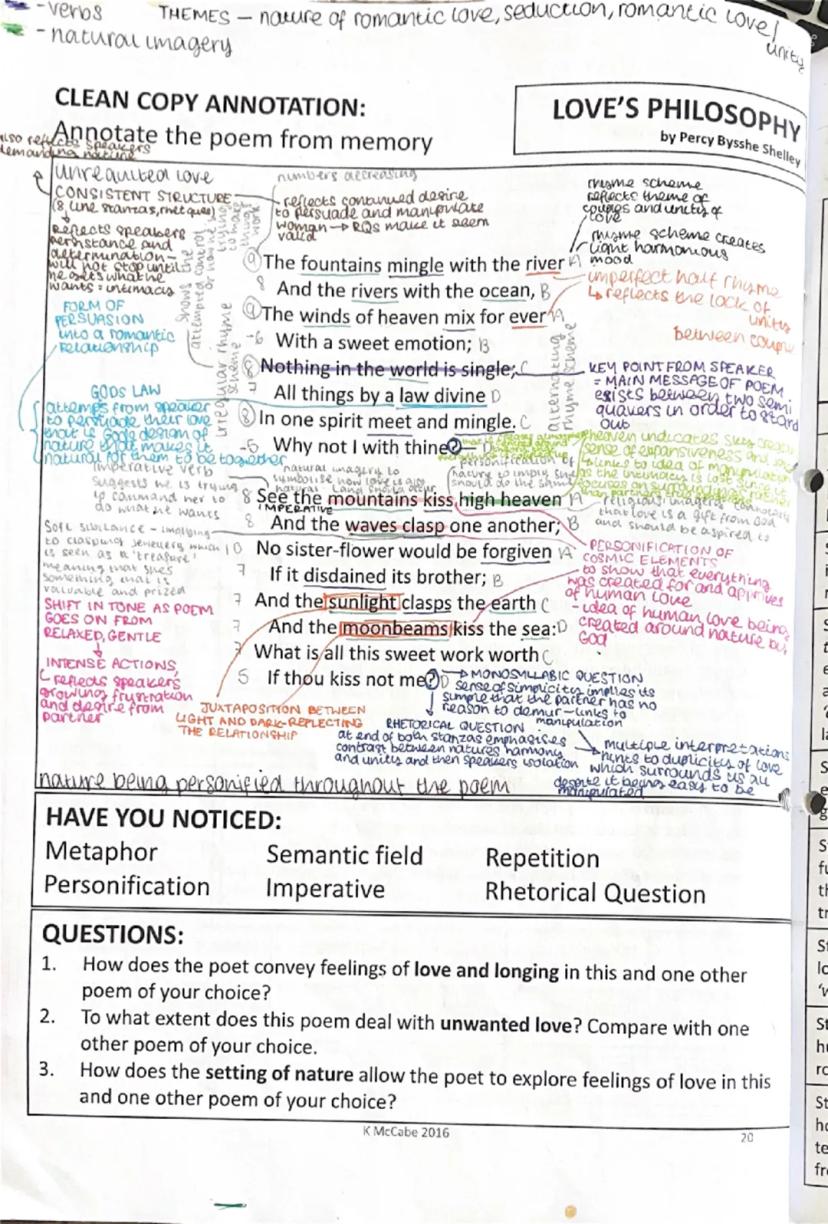 -verbs
THEMES - nature of romantic love, seduction, romantic love/
unity
- natural imagery
CLEAN COPY ANNOTATION:
Annotate the poem from memory
LOVE'S PHILOSOPHY
by Percy Bysshe Shelley
also reflects speakers
demanding nature
unrequited love
CONSISTENT STRUCTURE
(8 line stanzas, rhet ques)
Reflects speakers
persistance and
determination-
will not stop until
he gets what he
wants = intimacy
FORM OF
PERSUASION
into a romantic
relationship
GODS LAW
attemps from speaker
to persuade their love
that is Gods design of
nature that makes it
natural for them to be together
numbers decreasing
reflects continued desire
to persuade and manipulate
woman → RQs make it seem
valid
shows the
attempted control
trying
to make
things
work
irregular rhyme
scheme
rhyme scheme
reflects theme of
couples and unity of
love
rhyme scheme creates
light harmonious
mood
imperfect half rhyme
↳ reflects the lack of
unity
between couple
alternating
rhyme scheme
9 The fountains mingle with the river A
8 And the rivers with the ocean, B
9 The winds of heaven mix for ever A
-6 With a sweet emotion; B
8 Nothing in the world is single; C
7 All things by a law divine D
8 In one spirit meet and mingle. C
-5 Why not I with thine?
KEY POINT FROM SPEAKER
= MAIN MESSAGE OF POEM
exists between two semi
quavers in order to stand
out
heaven indicates skies
sense of expansiveness and
links to idea of manipulation
as the intimacy is lost since it
focuses on surroundings
personification of
nature to imply
should do the same
natural imagery to
symbolise how love is also
natural
religious imagery connotes
that love is a gift from God
and should be aspired to
imperative verb
suggests he is trying
to command her to
do what he wants
8 See the mountains kiss high heaven A
IMPERATIVE
8 And the waves clasp one another; B
10 No sister-flower would be forgiven A
7 If it disdained its brother; B
7 And the sunlight clasps the earth C
7 And the moonbeams kiss the sea: D
7 What is all this sweet work worth C
5 If thou kiss not me? D
Soft substance - implying
to clasping jewellery which
is seen as a 'treasure'
meaning that shes
something that is
valuable and prized
SHIFT IN TONE AS POEM
GOES ON FROM
RELAXED, GENTLE
INTENSE ACTIONS,
↳ reflects speakers
growing frustration
and desire from
partner
PERSONIFICATION OF
COSMIC ELEMENTS
to show that everything
was created for and approves
of human love
- idea of human love being
created around nature by
God
JUXTAPOSITION BETWEEN
LIGHT AND DARK - REFLECTING
THE RELATIONSHIP
→ MONOSYLLABIC QUESTION
sense of simplicity implies its
simple that the partner has no
reason to demur - links to
manipulation
RHETORICAL QUESTION
at end of both stanzas emphasises
contrast between natures harmony
and unity and then speakers isolation
multiple interpretations
hints to duplicity of love
which surrounds us all
despite it being easy to be
manipulated
nature being personified throughout the poem
HAVE YOU NOTICED:
Metaphor Semantic field Repetition
Personification Imperative Rhetorical Question
QUESTIONS:
1. How does the poet convey feelings of love and longing in this and one other
poem of your choice?
2. To what extent does this poem deal with unwanted love? Compare with one
other poem of your choice.
3. How does the setting of nature allow the poet to explore feelings of love in this
and one other poem of your choice?
K McCabe 2016
20